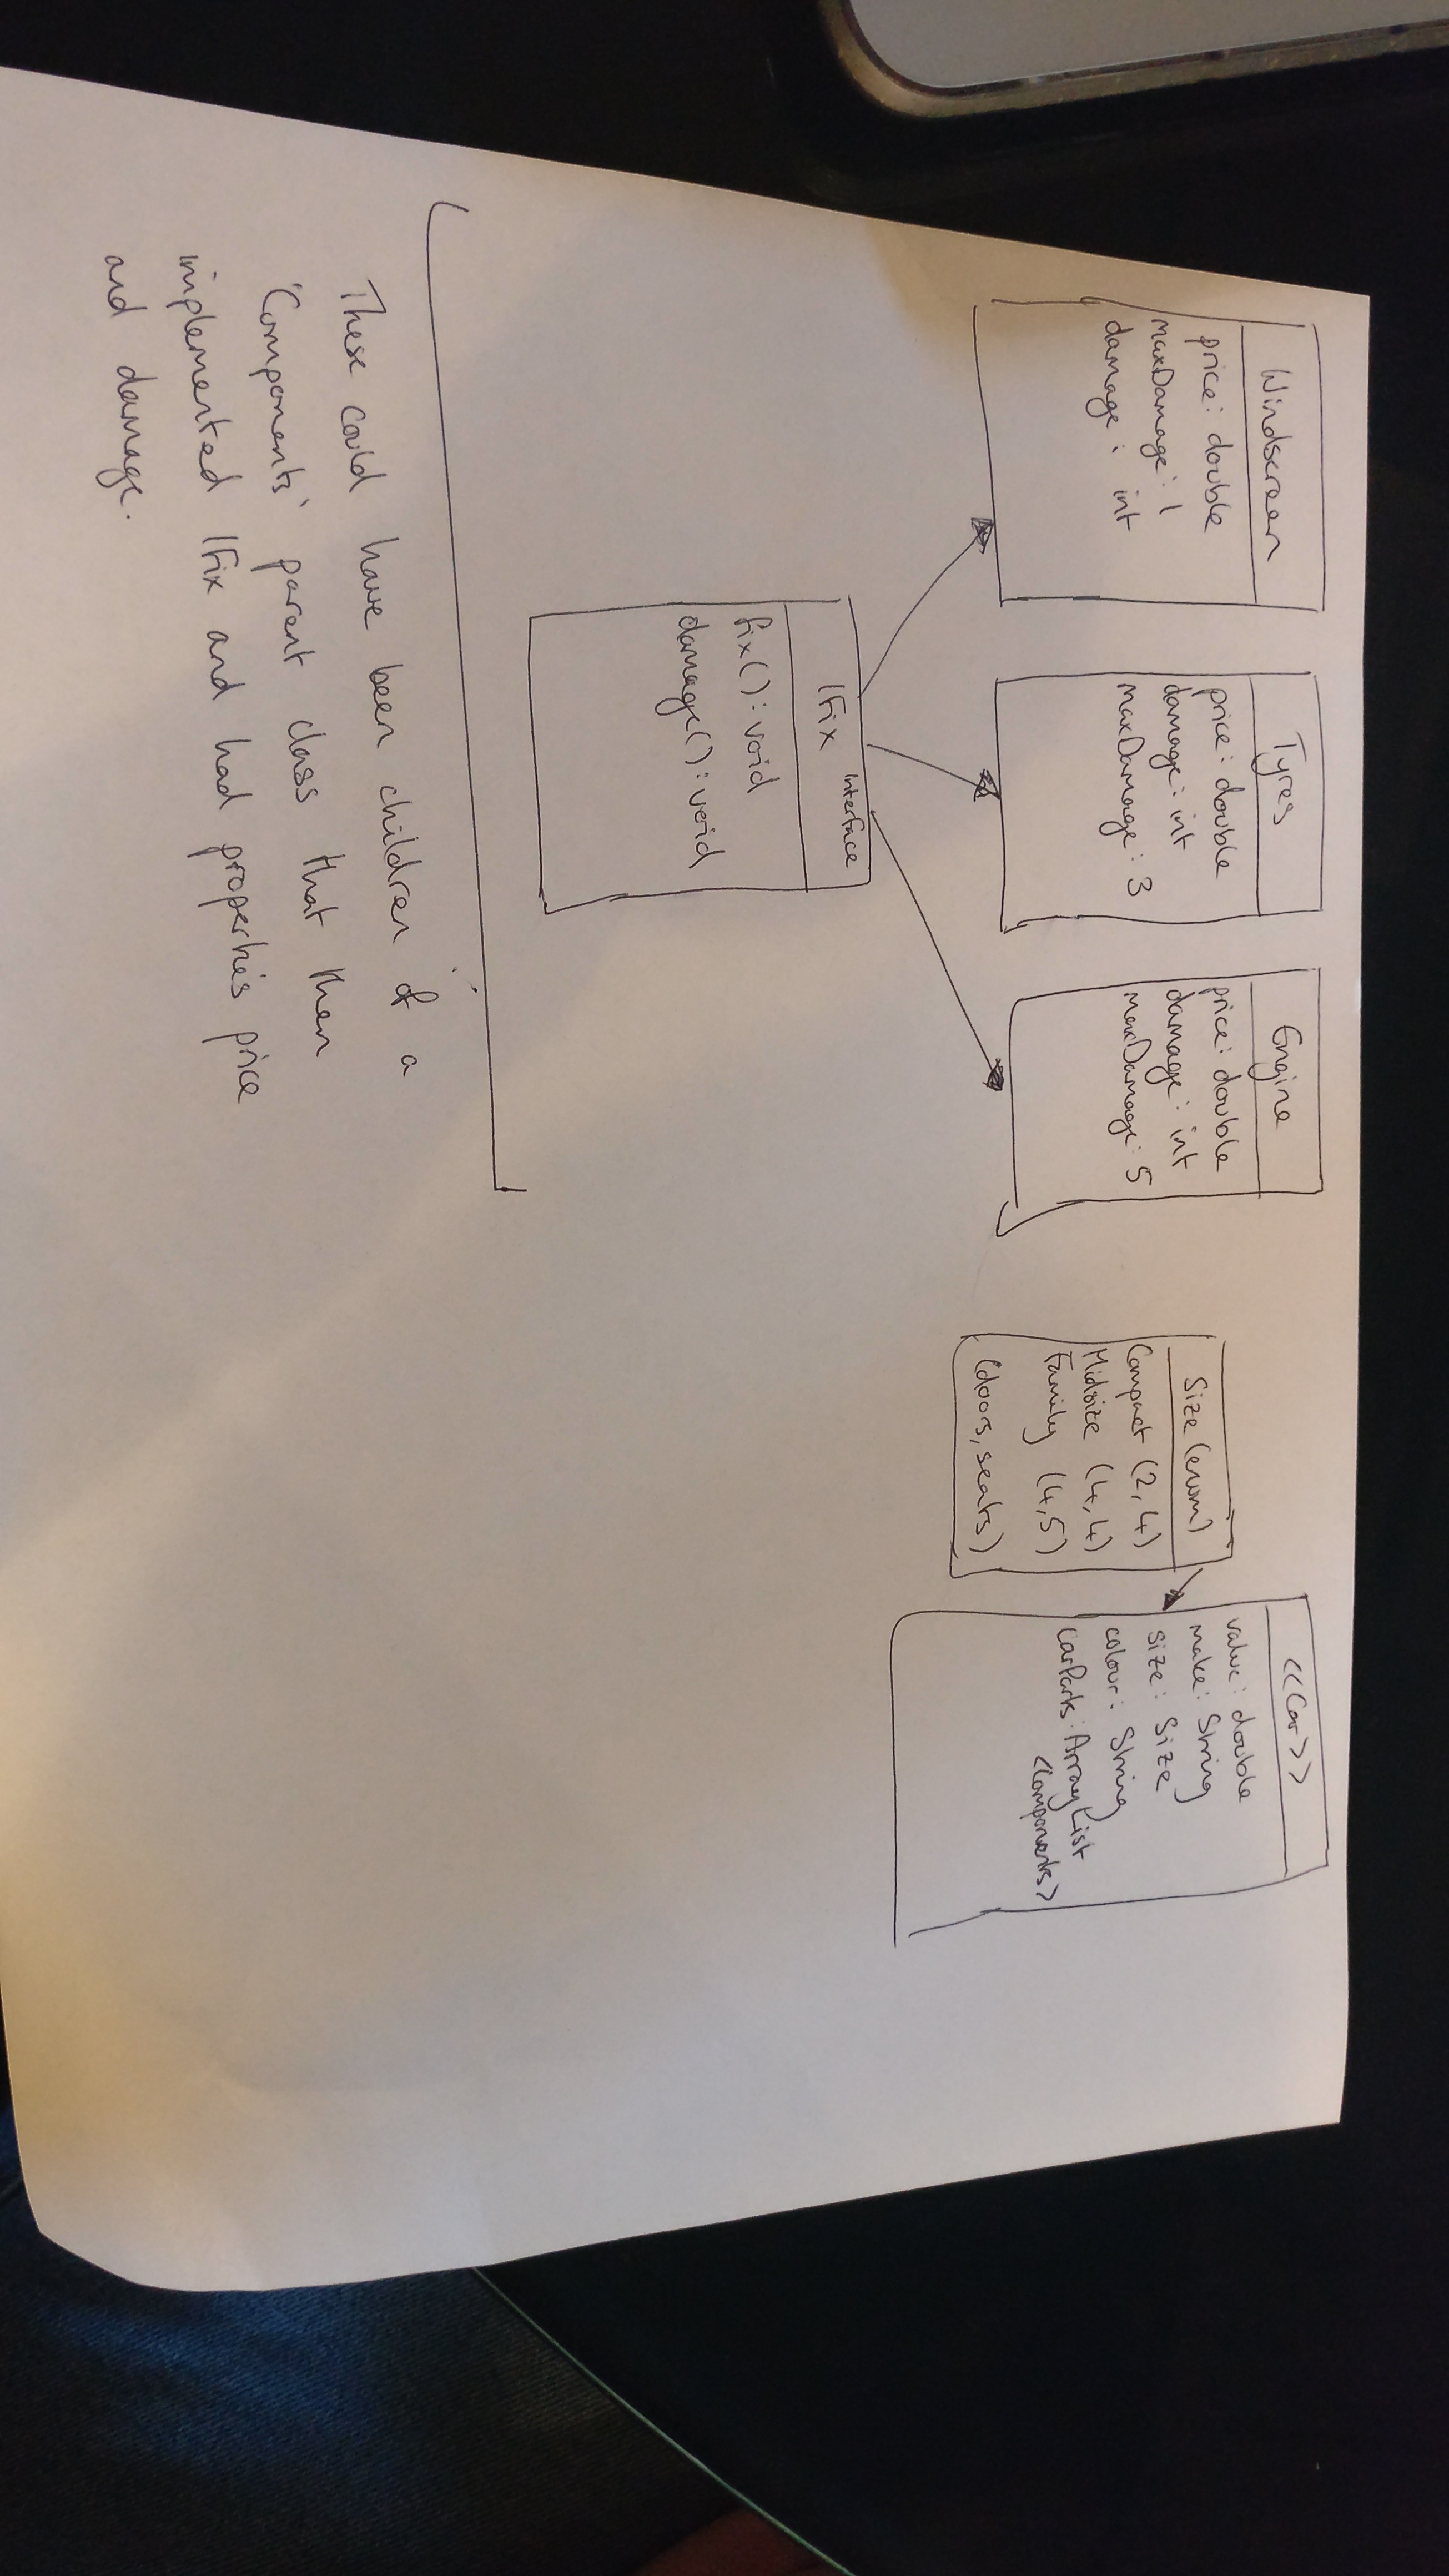 Windscreen
price: double
maxDamage: 1
damage: int
Tyres
price: double
damage: int
maxDamage: 3
Engine
price: double
damage: int
maxDamage: 5
Size (enum)
Compact (2,4)
Midsize (4,4)
Family (4,5)
(doors, seats)
<<Car>>
value: double
make: String
size: Size
colour: String
carParts: ArrayList
<Components>
Interface
IFix
fix(): void
damage(): void
These could have been children of a
'Components' parent class that then
implemented IFix and had properties price
and damage.